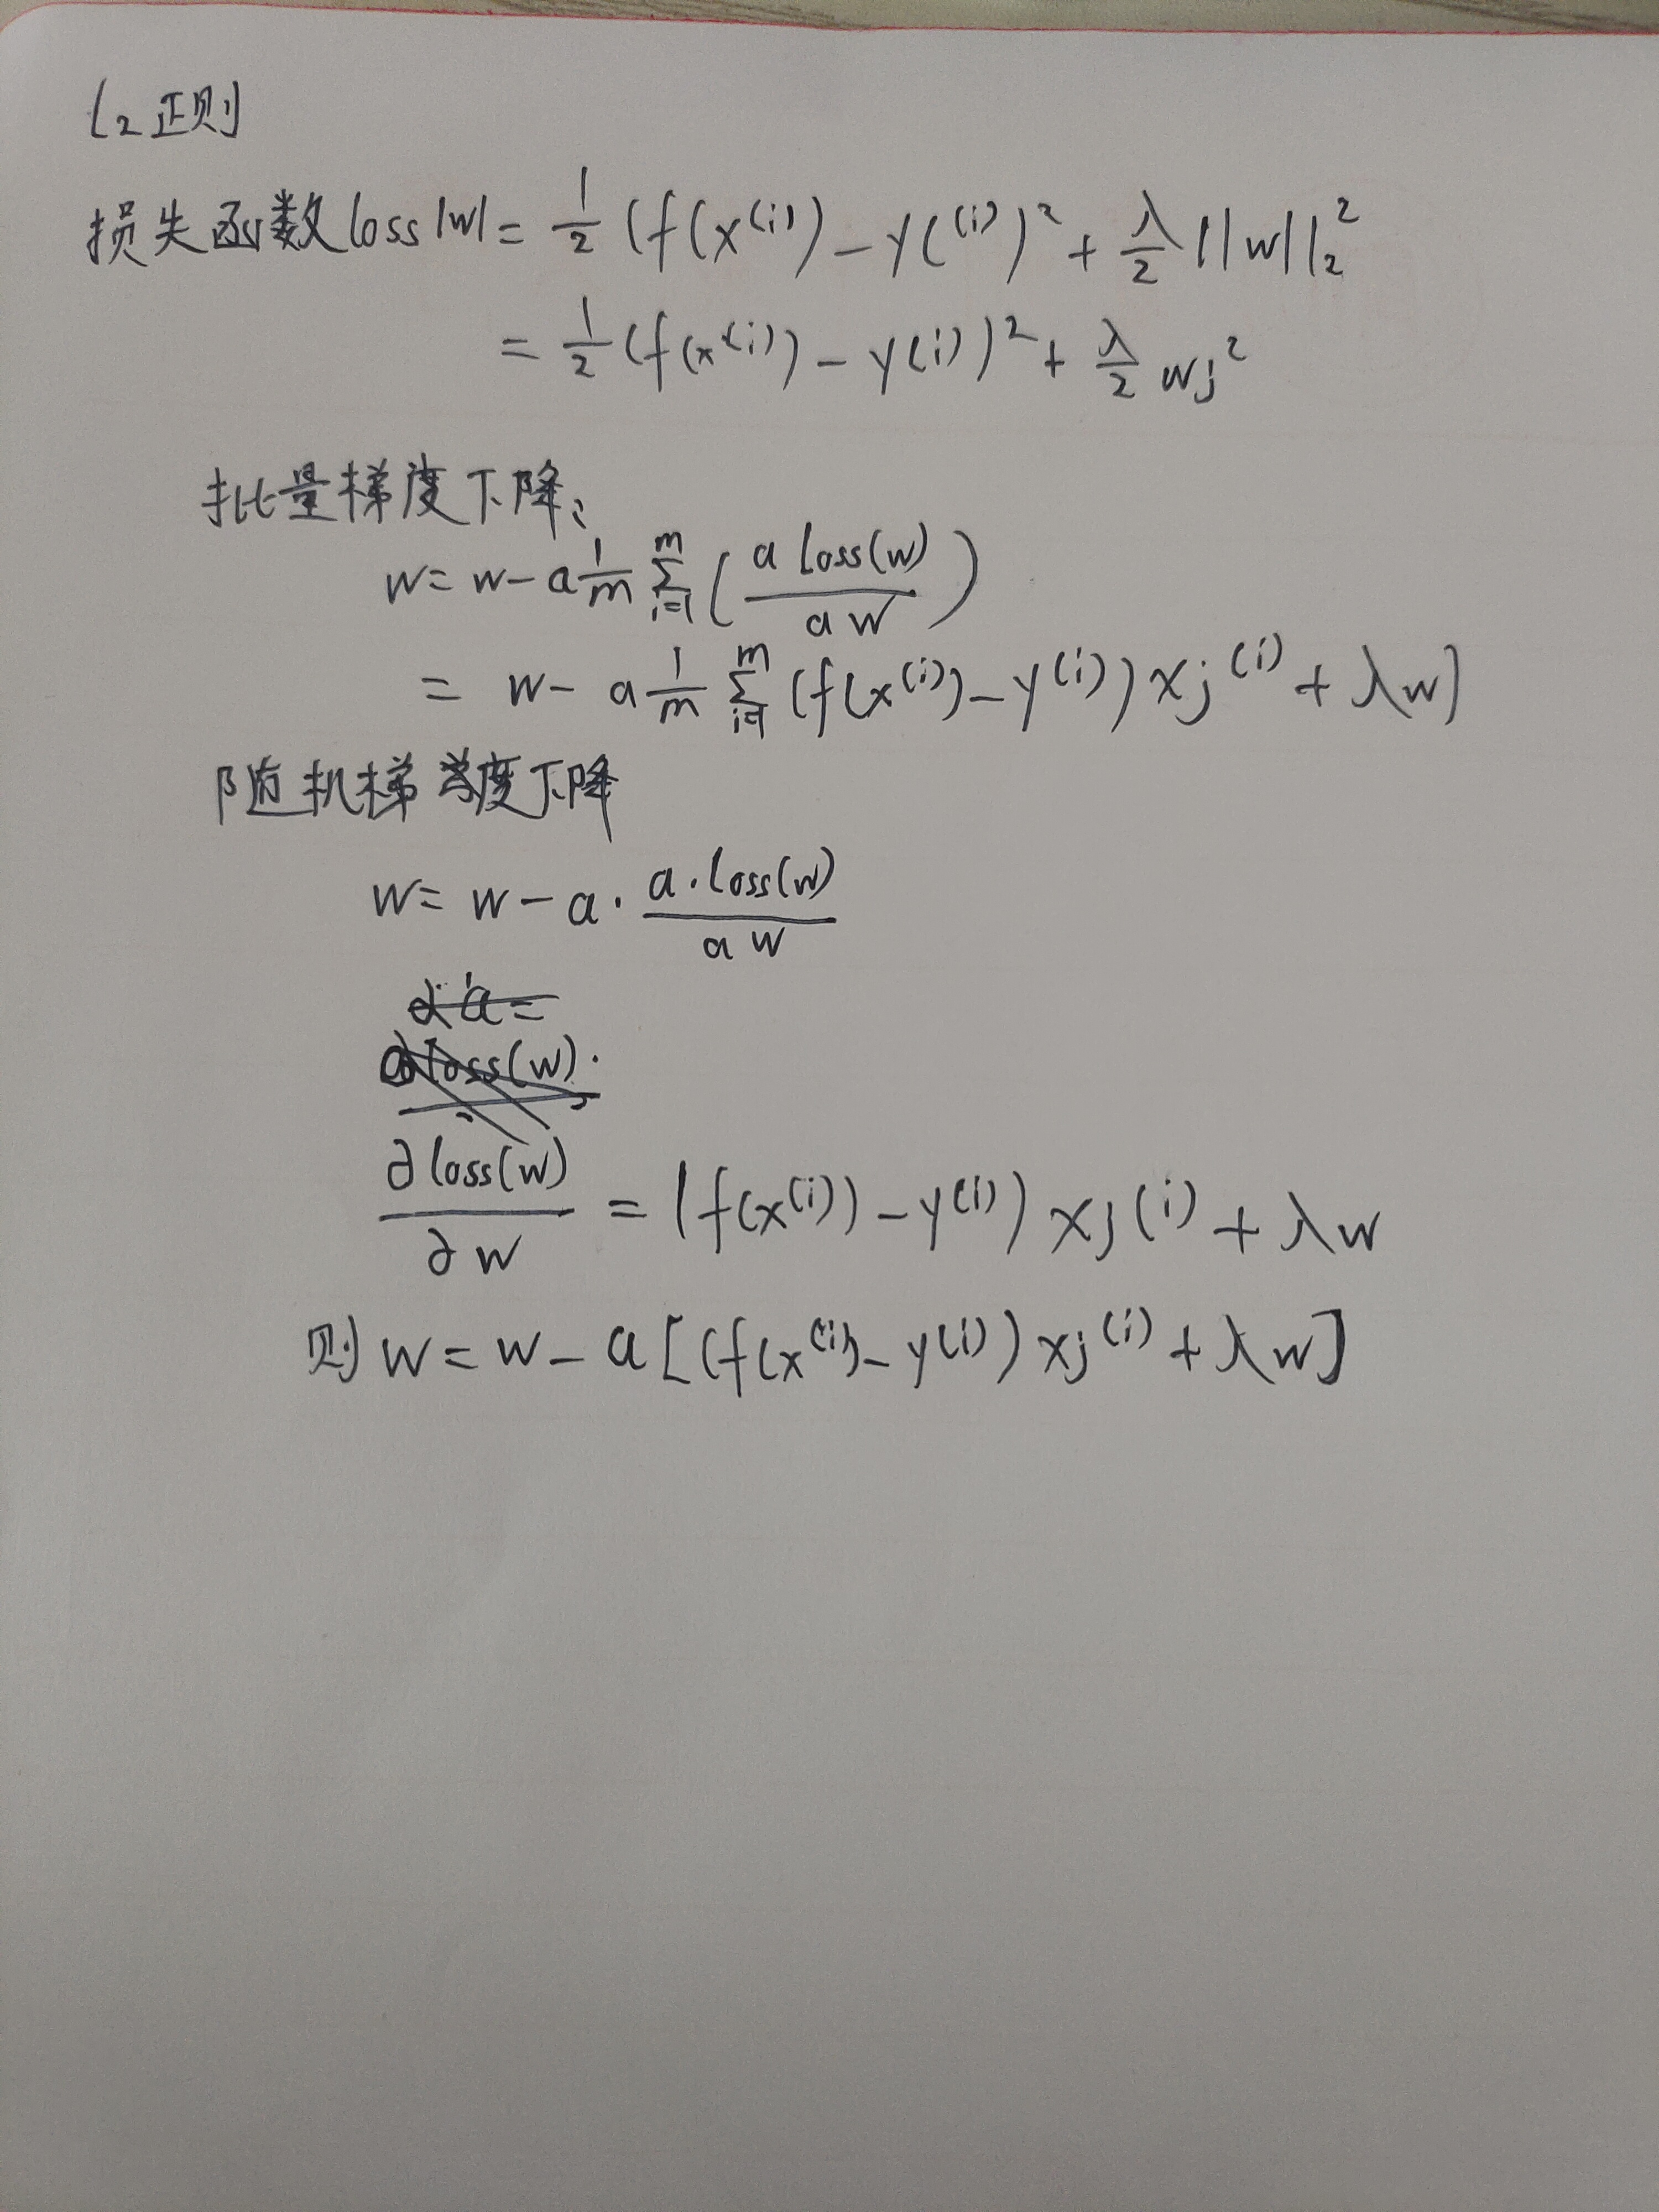 L₂正则
损失函数loss|w|= 1/2 (f(x⁽ⁱ⁾)-y(⁽ⁱ⁾)²+ λ/2 ||w||₂²
= 1/2 (f(x⁽ⁱ⁾)-y(i))²+ λ/2 wj²
批量梯度下降:
w= w-a 1/m Σᵢ₌₁ᵐ ( a loss(w) / a w )
= w- a 1/m Σᵢ₌₁ᵐ (f(x⁽ⁱ⁾)-y⁽ⁱ⁾) xj⁽ⁱ⁾+ λw]
随机梯度下降
w= w-a· a·loss(w) / a w
∂loss(w) / ∂w = (f(x⁽ⁱ⁾)-y⁽ⁱ⁾) xj⁽ⁱ⁾+ λw
则w=w-a[(f(x⁽ⁱ⁾)-y⁽ⁱ⁾) xj⁽ⁱ⁾+ λw]